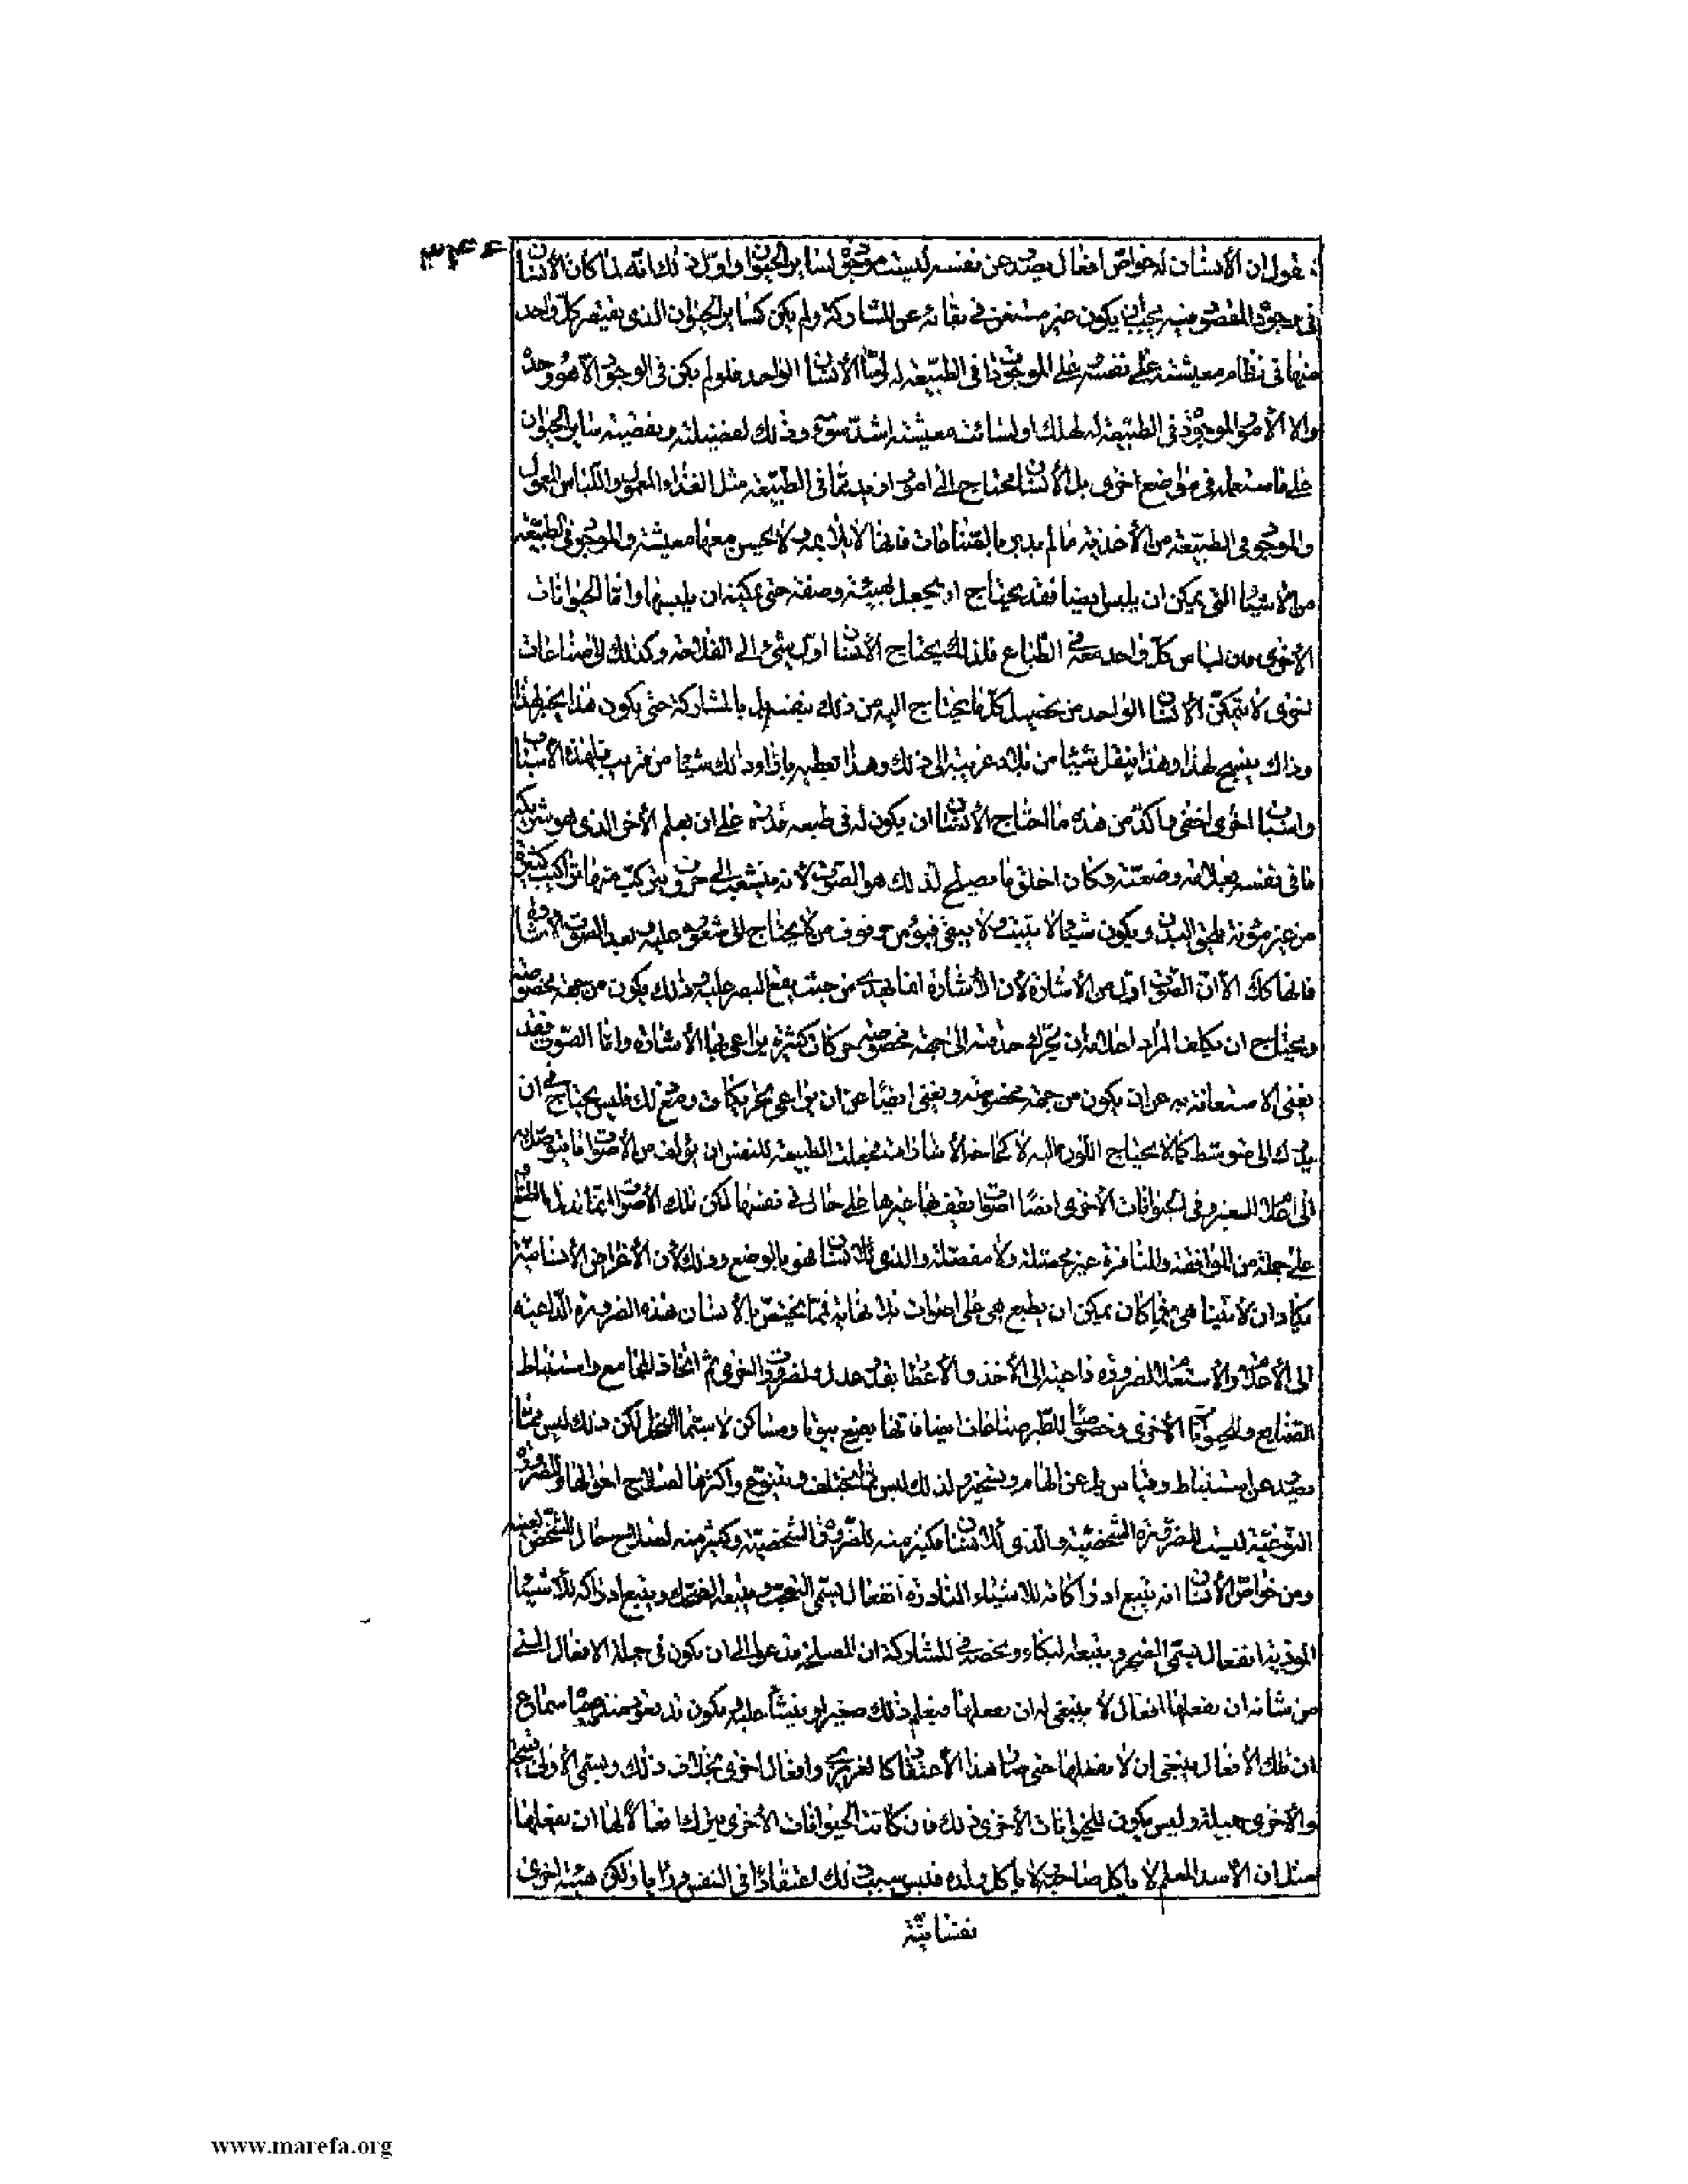 ٣٤٦
نقول ان الأنسان له خواص افعال يصدر عن نفسه ليست موجودة لسائر الحيوان واول ذلك انه لما كان الأنسان
فى وجوده المقصود فيه يجب ان يكون غير مستغن فى بقائه عن المشاركة ولم يكن كسائر الحيوان الذى يقتصر كل واحد
منها فى نظام معيشته على نفسه وعلى الموجودات فى الطبيعة له واما الأنسان الواحد فلو لم يكن فى الوجود الا هو وحده
والا الأمور الموجودة فى الطبيعة له لهلك او لسائت معيشته اشد سوء وذلك لفضيلته ونقيصة سائر الحيوان
على ما ستعلمه فى مواضع اخرى بل الأنسان محتاج الى امور ازيد مما فى الطبيعة مثل الغذاء المعمول واللباس المعمول
والموجود فى الطبيعة من الأغذية ما لم يدبر بالصناعات فانها لا يلائمه ولا يحسن معها معيشته والموجود فى الطبيعة
من الأشياء التى يمكن ان يلبس ايضا فقد يحتاج ان يجعل بهيئة وصفة حتى يمكنه ان يلبسها واما الحيوانات
الأخرى فان لباس كل واحد معه فى الطباع فلذلك يحتاج الأنسان اول شىء الى الفلاحة وكذلك الى صناعات
اخرى لا يتمكن الأنسان الواحد من تحصيل كل ما يحتاج اليه من ذلك بنفسه بل بالمشاركة حتى يكون هذا يخبز لهذا
وذاك ينسج لهذا وهذا ينقل شيئا من بلاد غريبة الى ذلك وهذا يعطيه بازاء ذلك شيئا من قريب فلهذه الأسباب
واسباب اخرى اخفى واكد من هذه ما احتاج الأنسان ان يكون له فى طبعه قدرة على ان يعلم الأخر الذى هو شريكه
ما فى نفسه بعلامة وضعية وكان اخلق ما يصلح لذلك هو الصوت لانه ينشعب الى حروف يتركب منها تراكيب كثيرة
من غير مئونة يلحق البدن ويكون شيئا لا يثبت ولا يبقى فيؤمن وقوف من لا يحتاج الى شعوره عليه وبعد الصوت الاشارة
فانها كك الا ان الصوت اول من الأشارة لأن الأشارة انما تهدى من حيث يقع البصر عليه وذلك يكون من جهة مخصوصة
ويحتاج ان يكلف المراد اعلامه ان يحرك حدقته الى جهة مخصوصة حركات كثيرة يراعى بها الأشارة واما الصوت فقد
يغنى الاستعانة به عن ان يكون من جهة مخصوصة ويغنى ايضا عن ان يراعى بحركات ومع ذلك فليس يحتاج فى ان
يدرك الى متوسط كما لا يحتاج اللون اليه لا كما يحتاج الأشارات فجعلت الطبيعة للنفس ان يؤلف من الأصوات ما يتوصل به
الى اعلام الغير وفى الحيوانات الأخرى ايضا اصوات يقف بها غيرها على حال فى نفسها لكن تلك الأصوات انما تدل بالطبع
على جملة من الموافقة والمنافرة غير محصلة ولا مفصلة والذى للأنسان فهو بالوضع وذلك لأن الأغراض الأنسانية
يكاد ان لا يتناهى فما كان يمكن ان يطبع هى على اصوات بلا نهاية فمما يختص بالأنسان هذه الضرورة الداعية
الى الأعلام والأستعلام لضرورة داعية الى الأخذ والأعطاء بقدر عدل ولضرورات اخرى ثم اتخاذ المجامع واستنباط
الصنايع وللحيوانات الأخرى وخصوصا للطير صناعات ايضا فانها يصنع بيوتا ومساكن لا سيما النحل لكن ذلك ليس مما
يصدر عن استنباط وقياس بل عن الهام وتسخير ولذلك ليس مما يختلف ويتنوع واكثرها لصلاح احوالها وللضرورة
النوعية ليست للضرورة الشخصية والذى للأنسان فكثير منه للضرورة الشخصية وكثير منه لصلاح حال الشخص بعينه
ومن خواص الأنسان انه يتبع ادراكاته للاشياء النادرة انفعال يسمى التعجب ويتبعه الضحك ويتبع ادراكه للأشياء
الموذية انفعال يسمى الضجر ويتبعه البكاء ويخصه فى المشاركة ان المصلحة تدعو الى ان يكون فى جملة الافعال التى
من شانه ان يفعلها افعال لا ينبغى له ان يفعلها فيعلم ذلك صغيرا وينشأ عليه ويكون قد تعود منذ صباه سماع
ان تلك الأفعال ينبغى ان لا يفعلها حتى صار هذا الأعتقاد كالغريزى وافعال اخرى بخلاف ذلك ويسمى الأولى قبيحة
والأخرى جميلة وليس يكون للحيوانات الأخرى ذلك فان كانت الحيوانات الأخرى يترك افعالا لها ان يفعلها
مثل ان الأسد المعلم لا ياكل صاحبه ولا ياكل ولده فليس سبب ذلك اعتقادا فى النفس ورأيا ولكن هيئة اخرى
نفسانية
www.marefa.org